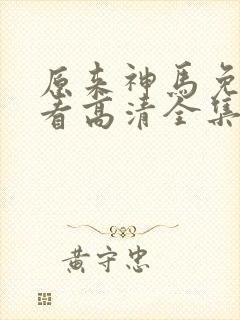 原来神马免
看高清全集
黄守忠